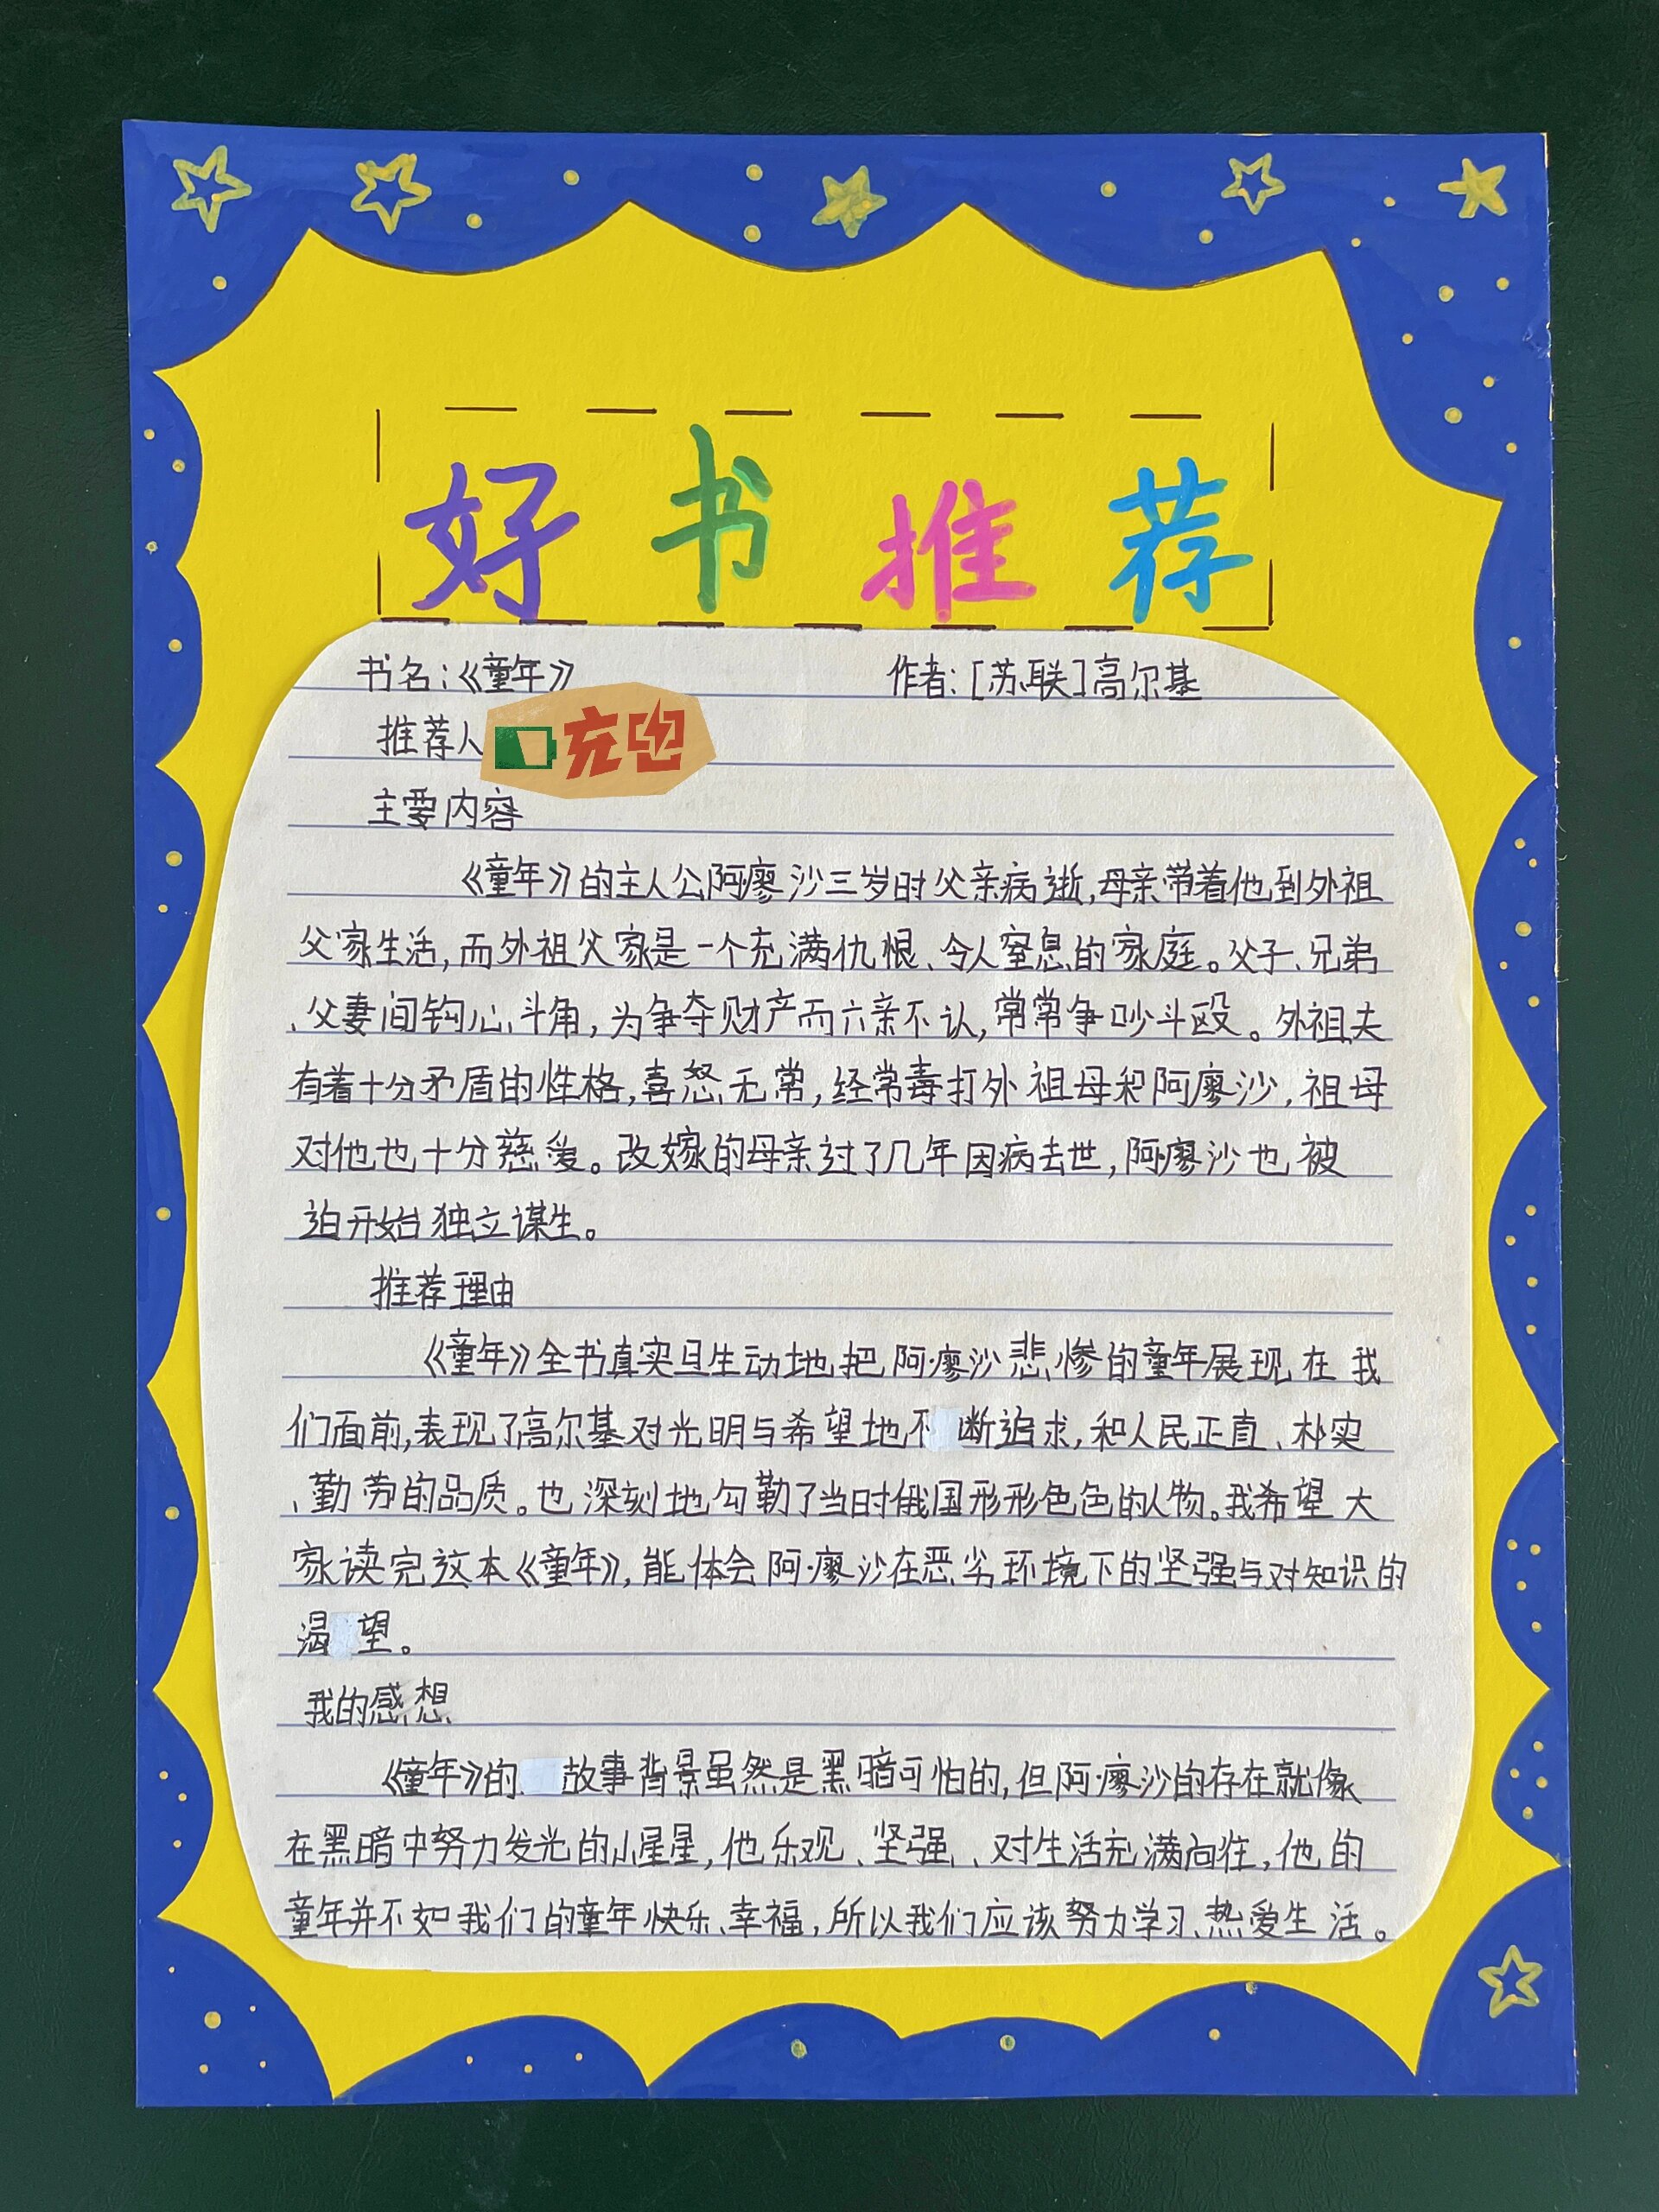 好书推荐
书名：《童年》 作者：[苏联]高尔基
推荐人 充电
主要内容
《童年》的主人公阿廖沙三岁时父亲病逝，母亲带着他到外祖
父家生活，而外祖父家是一个充满仇恨、令人窒息的家庭。父子、兄弟
、父妻间钩心斗角，为争夺财产而六亲不认，常常争吵斗殴。外祖夫
有着十分矛盾的性格，喜怒无常，经常毒打外祖母和阿廖沙，祖母
对他也十分慈爱。改嫁的母亲过了几年因病去世，阿廖沙也被
迫开始独立谋生。
推荐理由
《童年》全书真实且生动地把阿廖沙悲惨的童年展现在我
们面前，表现了高尔基对光明与希望地不断追求，和人民正直、朴实
、勤劳的品质。也深刻地勾勒了当时俄国形形色色的人物。我希望大
家读完这本《童年》，能体会阿廖沙在恶劣环境下的坚强与对知识的
渴望。
我的感想
《童年》的故事背景虽然是黑暗可怕的，但阿廖沙的存在就像
在黑暗中努力发光的小星星，他乐观、坚强、对生活充满向往，他的
童年并不如我们的童年快乐、幸福，所以我们应该努力学习、热爱生活。